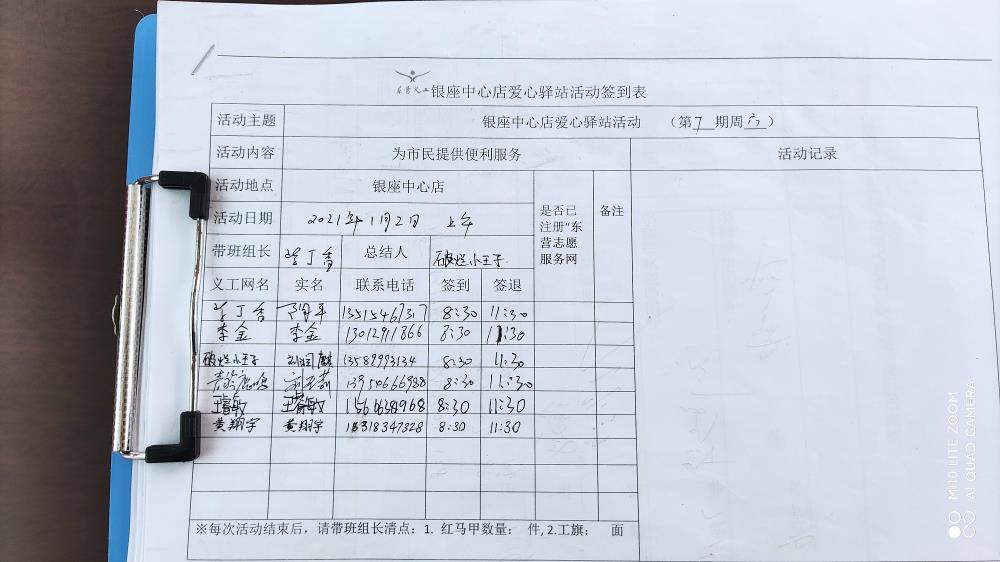 东营义工 银座中心店爱心驿站活动签到表
活动主题 银座中心店爱心驿站活动 （第7期周六）
活动内容 为市民提供便利服务 活动记录
活动地点 银座中心店 是否已注册“东营志愿服务网 备注
活动日期 2021年1月2日 上午
带班组长 紫丁香 总结人 破烂小王子
义工网名 实名 联系电话 签到 签退
紫丁香 13515467317 8:30 11:30
李金 李金 13012911866 8:30 11:30
破烂小王子 13589993134 8:30 11:30
鹿鸣 13954666988 8:30 11:30
王睿敏 王睿敏 8:30 11:30
黄翔宇 黄翔宇 18318347328 8:30 11:30
※每次活动结束后，请带班组长清点：1. 红马甲数量： 件, 2.工旗： 面
MI 10 LITE ZOOM
AI QUAD CAMERA